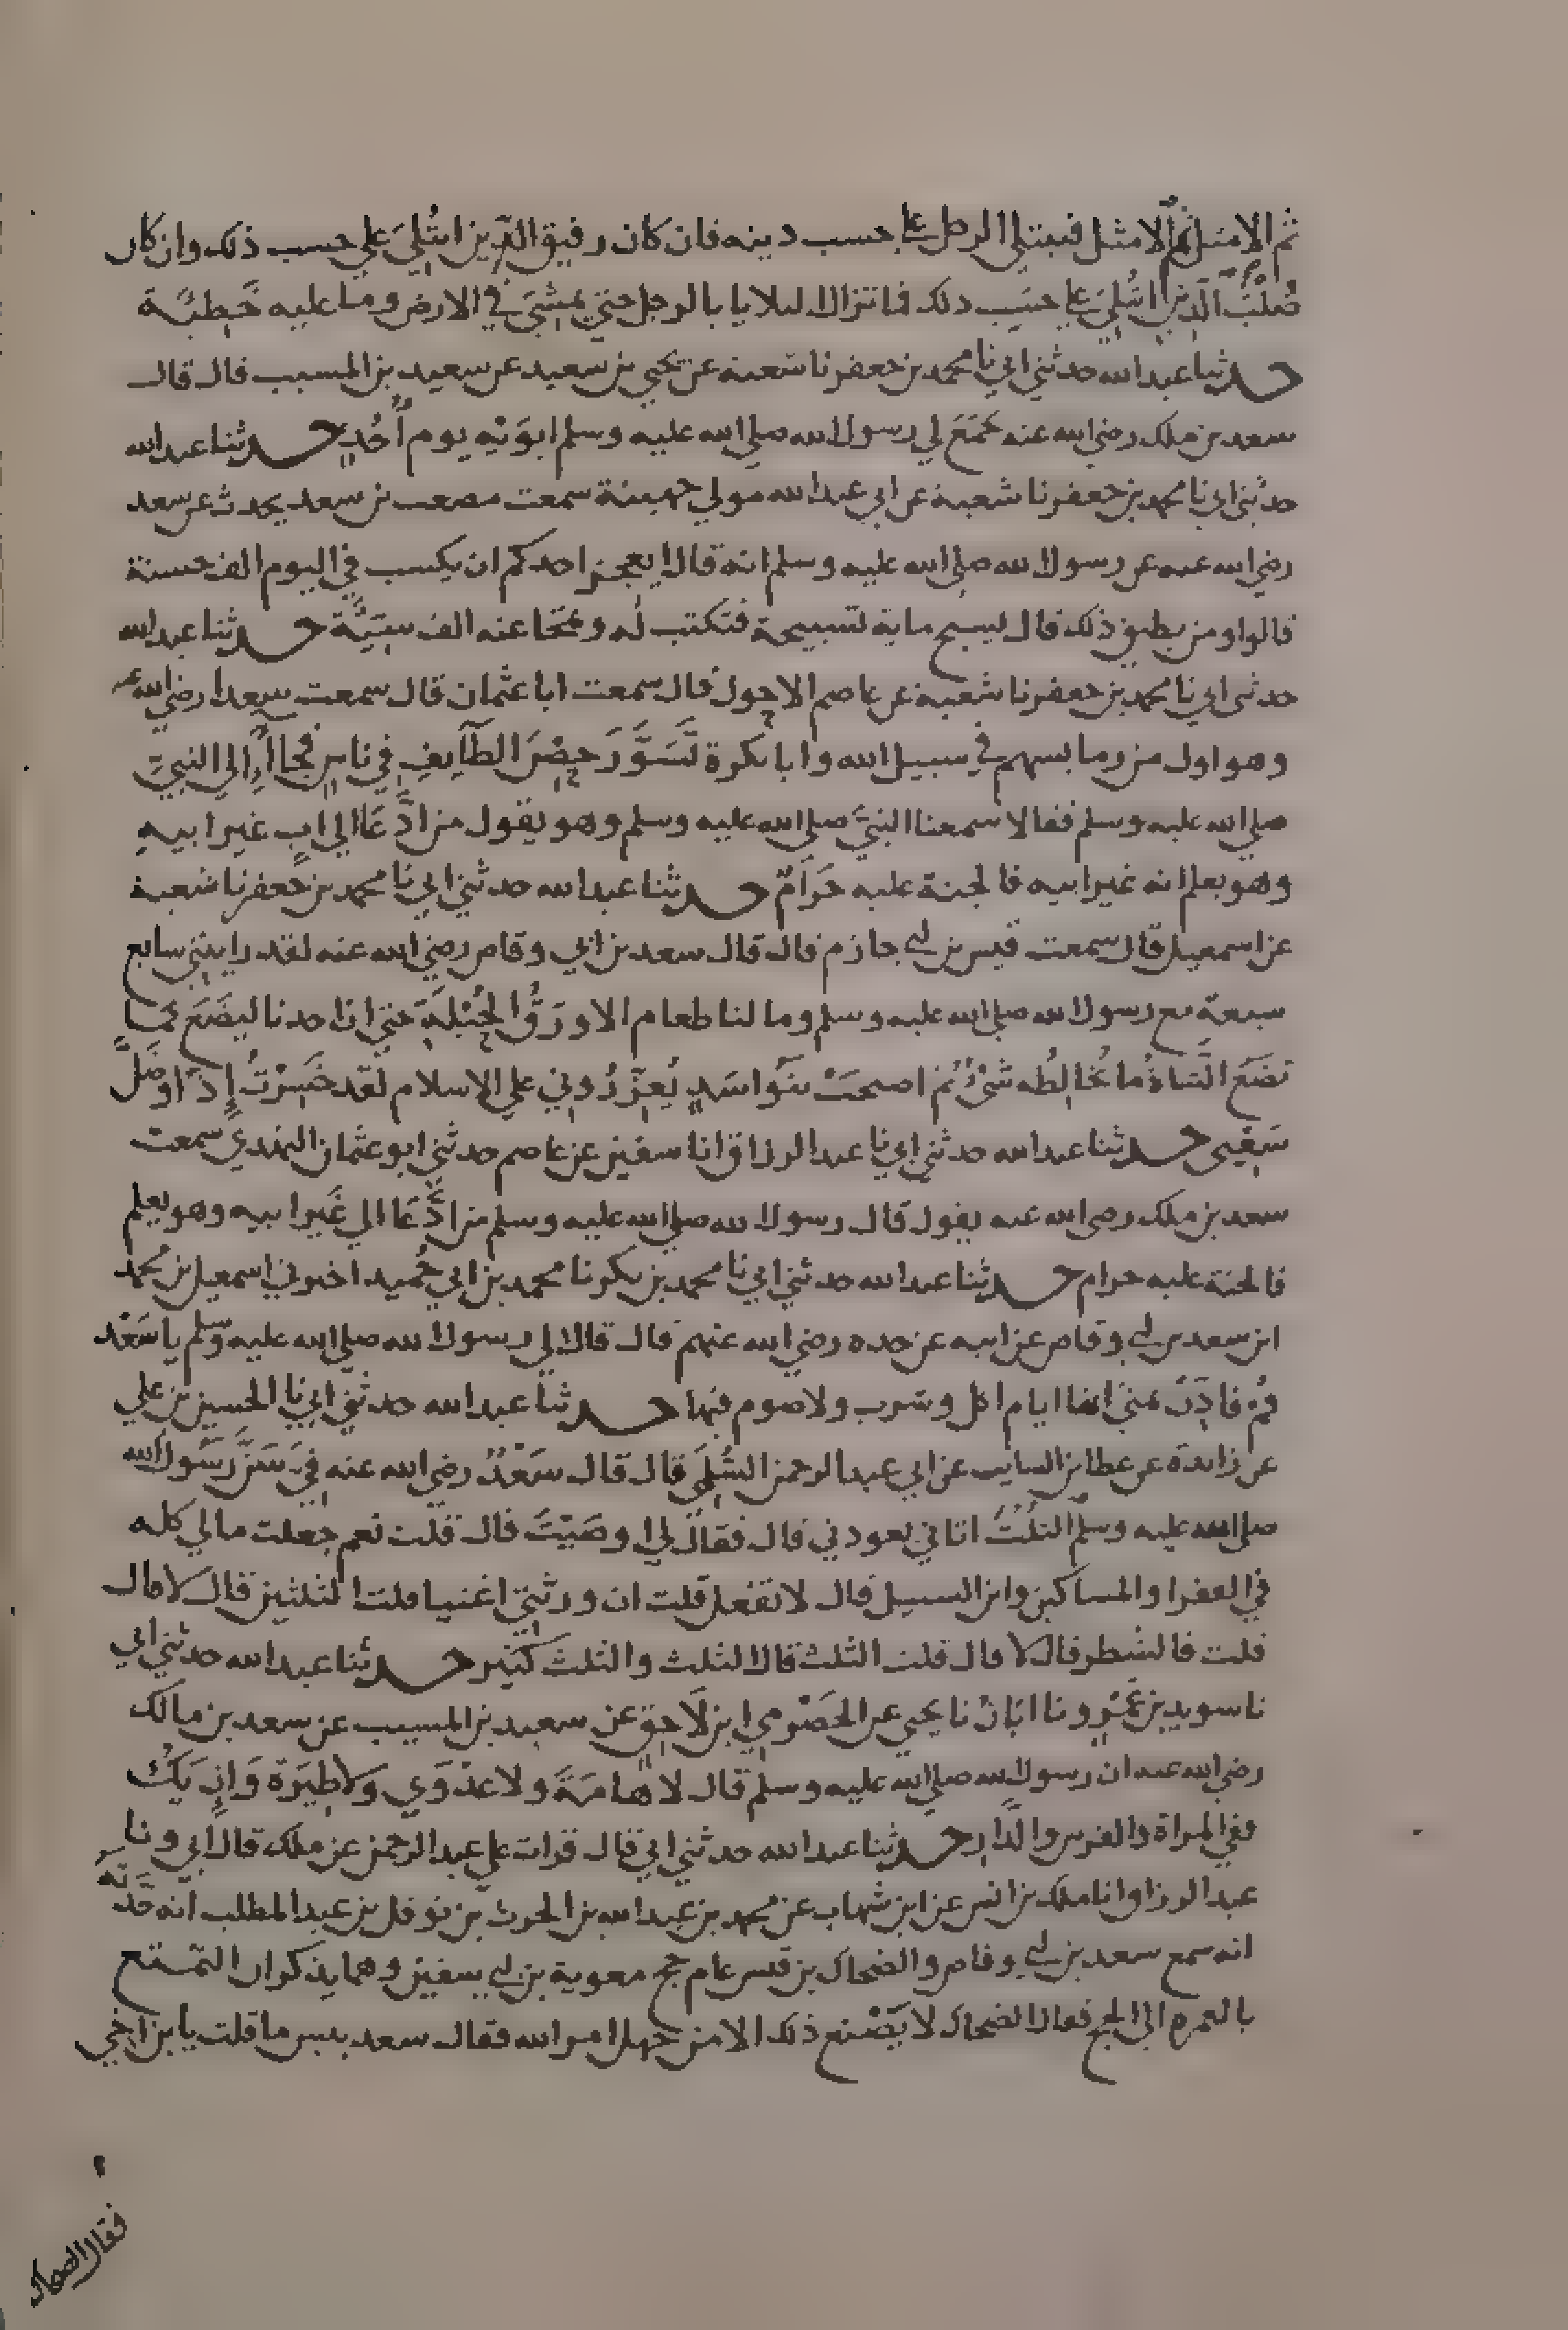 ثم الامثل ثم الامثل فيبتلى الرجل على حسب دينه فان كان رقيق الدين ابتُلِيَ على حسب ذلك وان كان
صُلْبَ الدين ابتُلِيَ على حسَب ذلك فما تزال البلايا بالرجل حتى يمشيَ في الارض وما عليه خَطيَّة
حدثنا عبدالله حدثني ابي نا محمد بن جعفر نا شعبة عن يحيى بن سعيد عن سعيد بن المسيب قال قال
سعد بن ملك رضي الله عنه جَمَعَ لي رسول الله صلى الله عليه وسلم ابوَيْهِ يوم أُحُدٍ حدثنا عبدالله
حدثني ابي نا محمد بن جعفر نا شعبة عن ابي عبدالله مولى جهينة سمعت مصعب بن سعد يحدث عن سعد
رضي الله عنه عن رسول الله صلى الله عليه وسلم انه قال ايعجز احدكم ان يكسب في اليوم الف حسنة
قالوا ومن يطيق ذلك قال يسبح ماية تسبيحة فتكتب لُه وتمحا عنه الف سيَيَّة حدثنا عبدالله
حدثني ابي نا محمد بن جعفر نا شعبة عن عاصم الاحول قال سمعت ابا عثمان قال سمعت سعدا رضي الله عنه
وهو اول من رما بسهم في سبيل الله وابا بكرة تَسَوَّرَ حِصْنَ الطَّايِفِ في ناسٍ فجاآ إلى النبيّ
صلى الله عليه وسلم فقالا سمعنا النبيَّ صلى الله عليه وسلم وهو يقول من ادَّعَا الى ابٍ غير ابيهِ
وهو يعلم انه غير ابيه فالجنة عليه حَرَامٌ حدثنا عبدالله حدثني ابي نا محمد بن جعفر نا شعبة
عن اسمعيل قال سمعت قيس بن ابي حازم قال قال سعد بن ابي وقاص رضي الله عنه لقد رايتني سابع
سبعة مع رسول الله صلى الله عليه وسلم وما لنا طعام الا ورَقُ الحُبْلَةِ حتى ان احدنا ليضَعَ كما
تضَعُ الشاةُ ما يُخالِطُه شىْءٌ ثم اصبحَتْ بنُوا سَدٍ يُعزِّرُوني على الاسلام لقد خَسِرْتُ إِذًا وضَلَّ
سَعْيِي حدثنا عبدالله حدثني ابي نا عبدالرزاق انا سفين عن عاصم حدثني ابو عثمان النهدي سمعت
سعد بن ملك رضي الله عنه يقول قال رسول الله صلى الله عليه وسلم من ادَّعَا الى غَير ابيه وهو يعلم
فالجنة عليه حرام حدثنا عبدالله حدثني ابي نا محمد بن بكر نا محمد بن ابي حُميد اخبرني اسمعيل بن محمد
ابن سعد بن ابي وقاص عن ابيه عن جده رضي الله عنهم قال قال لي رسول الله صلى الله عليه وسلم يا سَعْد
قُمْ فاذِّنْ بمنى انها ايام اكل وشرب ولا صوم فيها حدثنا عبدالله حدثني ابي نا الحسين بن علي
عن زائدة عن عطا بن السايب عن ابي عبدالرحمن السُّلَمِيّ قال قال سَعْدٌ رضي الله عنه فيَّ سَنَّ رَسُول الله
صلى الله عليه وسلم الثلُثَ اتاني يعودني قال فقال لي اوصَيْتَ قال قلت نعم جعلت مالي كله
في الفقرا والمساكين وابن السبيل قال لا تفعل قلت ان ورثتي اغنيا قلت الثلثين قال لا قال
قلت فالشطر قال لا قال قلت الثلث قال الثلث والثلث كثير حدثنا عبدالله حدثني ابي
نا سويد بن عَمْرو نا ابَانٌ نا يحيى عن الحَضْرمي ابن لَاحِقٍ عن سعيد بن المسيب عن سعد بن مالك
رضي الله عنه ان رسول الله صلى الله عليه وسلم قال لا هَامَةَ ولا عدْوَى ولا طِيَرَة وَان يَكُ
ففي المراة والفرس والدار حدثنا عبدالله حدثني ابي قال قرات على عبدالرحمن عن ملك قال ابي ونا
عبدالرزاق انا ملك بن انس عن ابن شهاب عن محمد بن عبدالله بن الحرث بن نوفل بن عبدالمطلب انه حَدَّثَهُ
انه سمع سعد بن ابي وقاص والضحاك بن قيس عام حج معوية بن ابي سفين وهما يذكران التمتع
بالعمرة الى الحج فقال الضحاك لا يَصْنع ذلك الا من جهل امر الله فقال سعد بيس ما قلت يابن اخي
فقال الضحاك